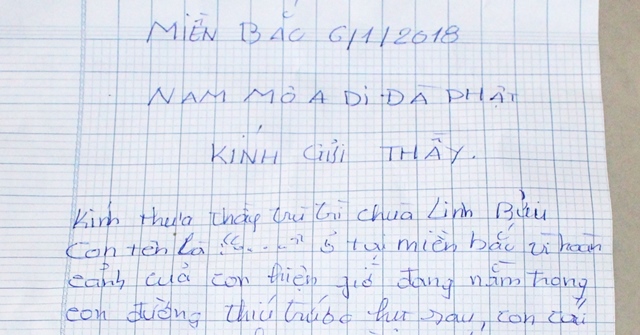 MIỀN BẮC 6/1/2018
NAM MÔ A DI ĐÀ PHẬT
KÍNH GỬI THẦY.
Kính thưa thầy trụ trì chùa Linh Bửu
Con tên là "....." ở tại miền bắc vì hoàn
cảnh của con hiện giờ đang nằm trong
con đường thiếu trước hụt sau, con cái